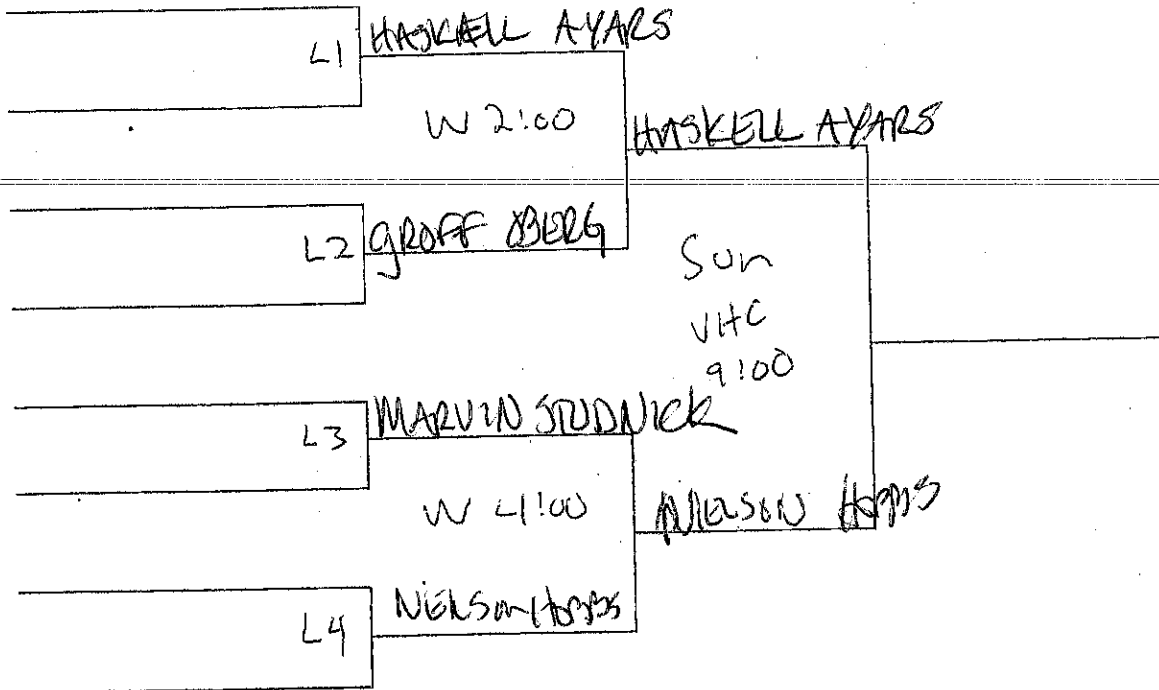 L1 HASKELL AYARS
W 2:00
HASKELL AYARS
L2 GROFF OBERG
Sun
VHC
9:00
L3 MARVIN STUDNICK
W 4:00
NIELSON HOBBS
L4 NIELSON HOBBS